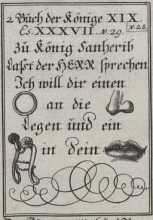 2 Buch der Könige XIX.
v. 28.
Es XXXVII. v. 29.
zu König Sanherib
Laſet der HERR ſprechen
Ich will dir einen
an die
Legen und ein
in Dein